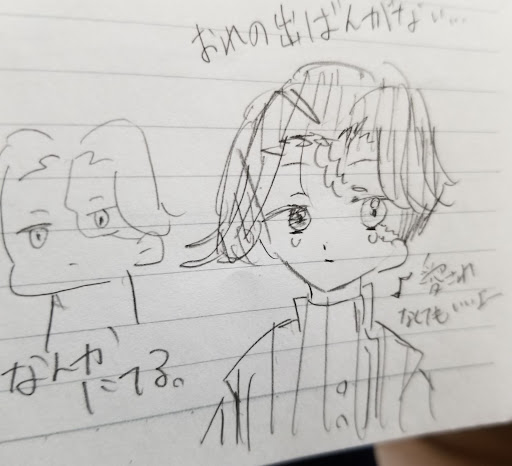 おれの出ばんがない…
♪愛され
なくてもいい♪
なんか
にてる。